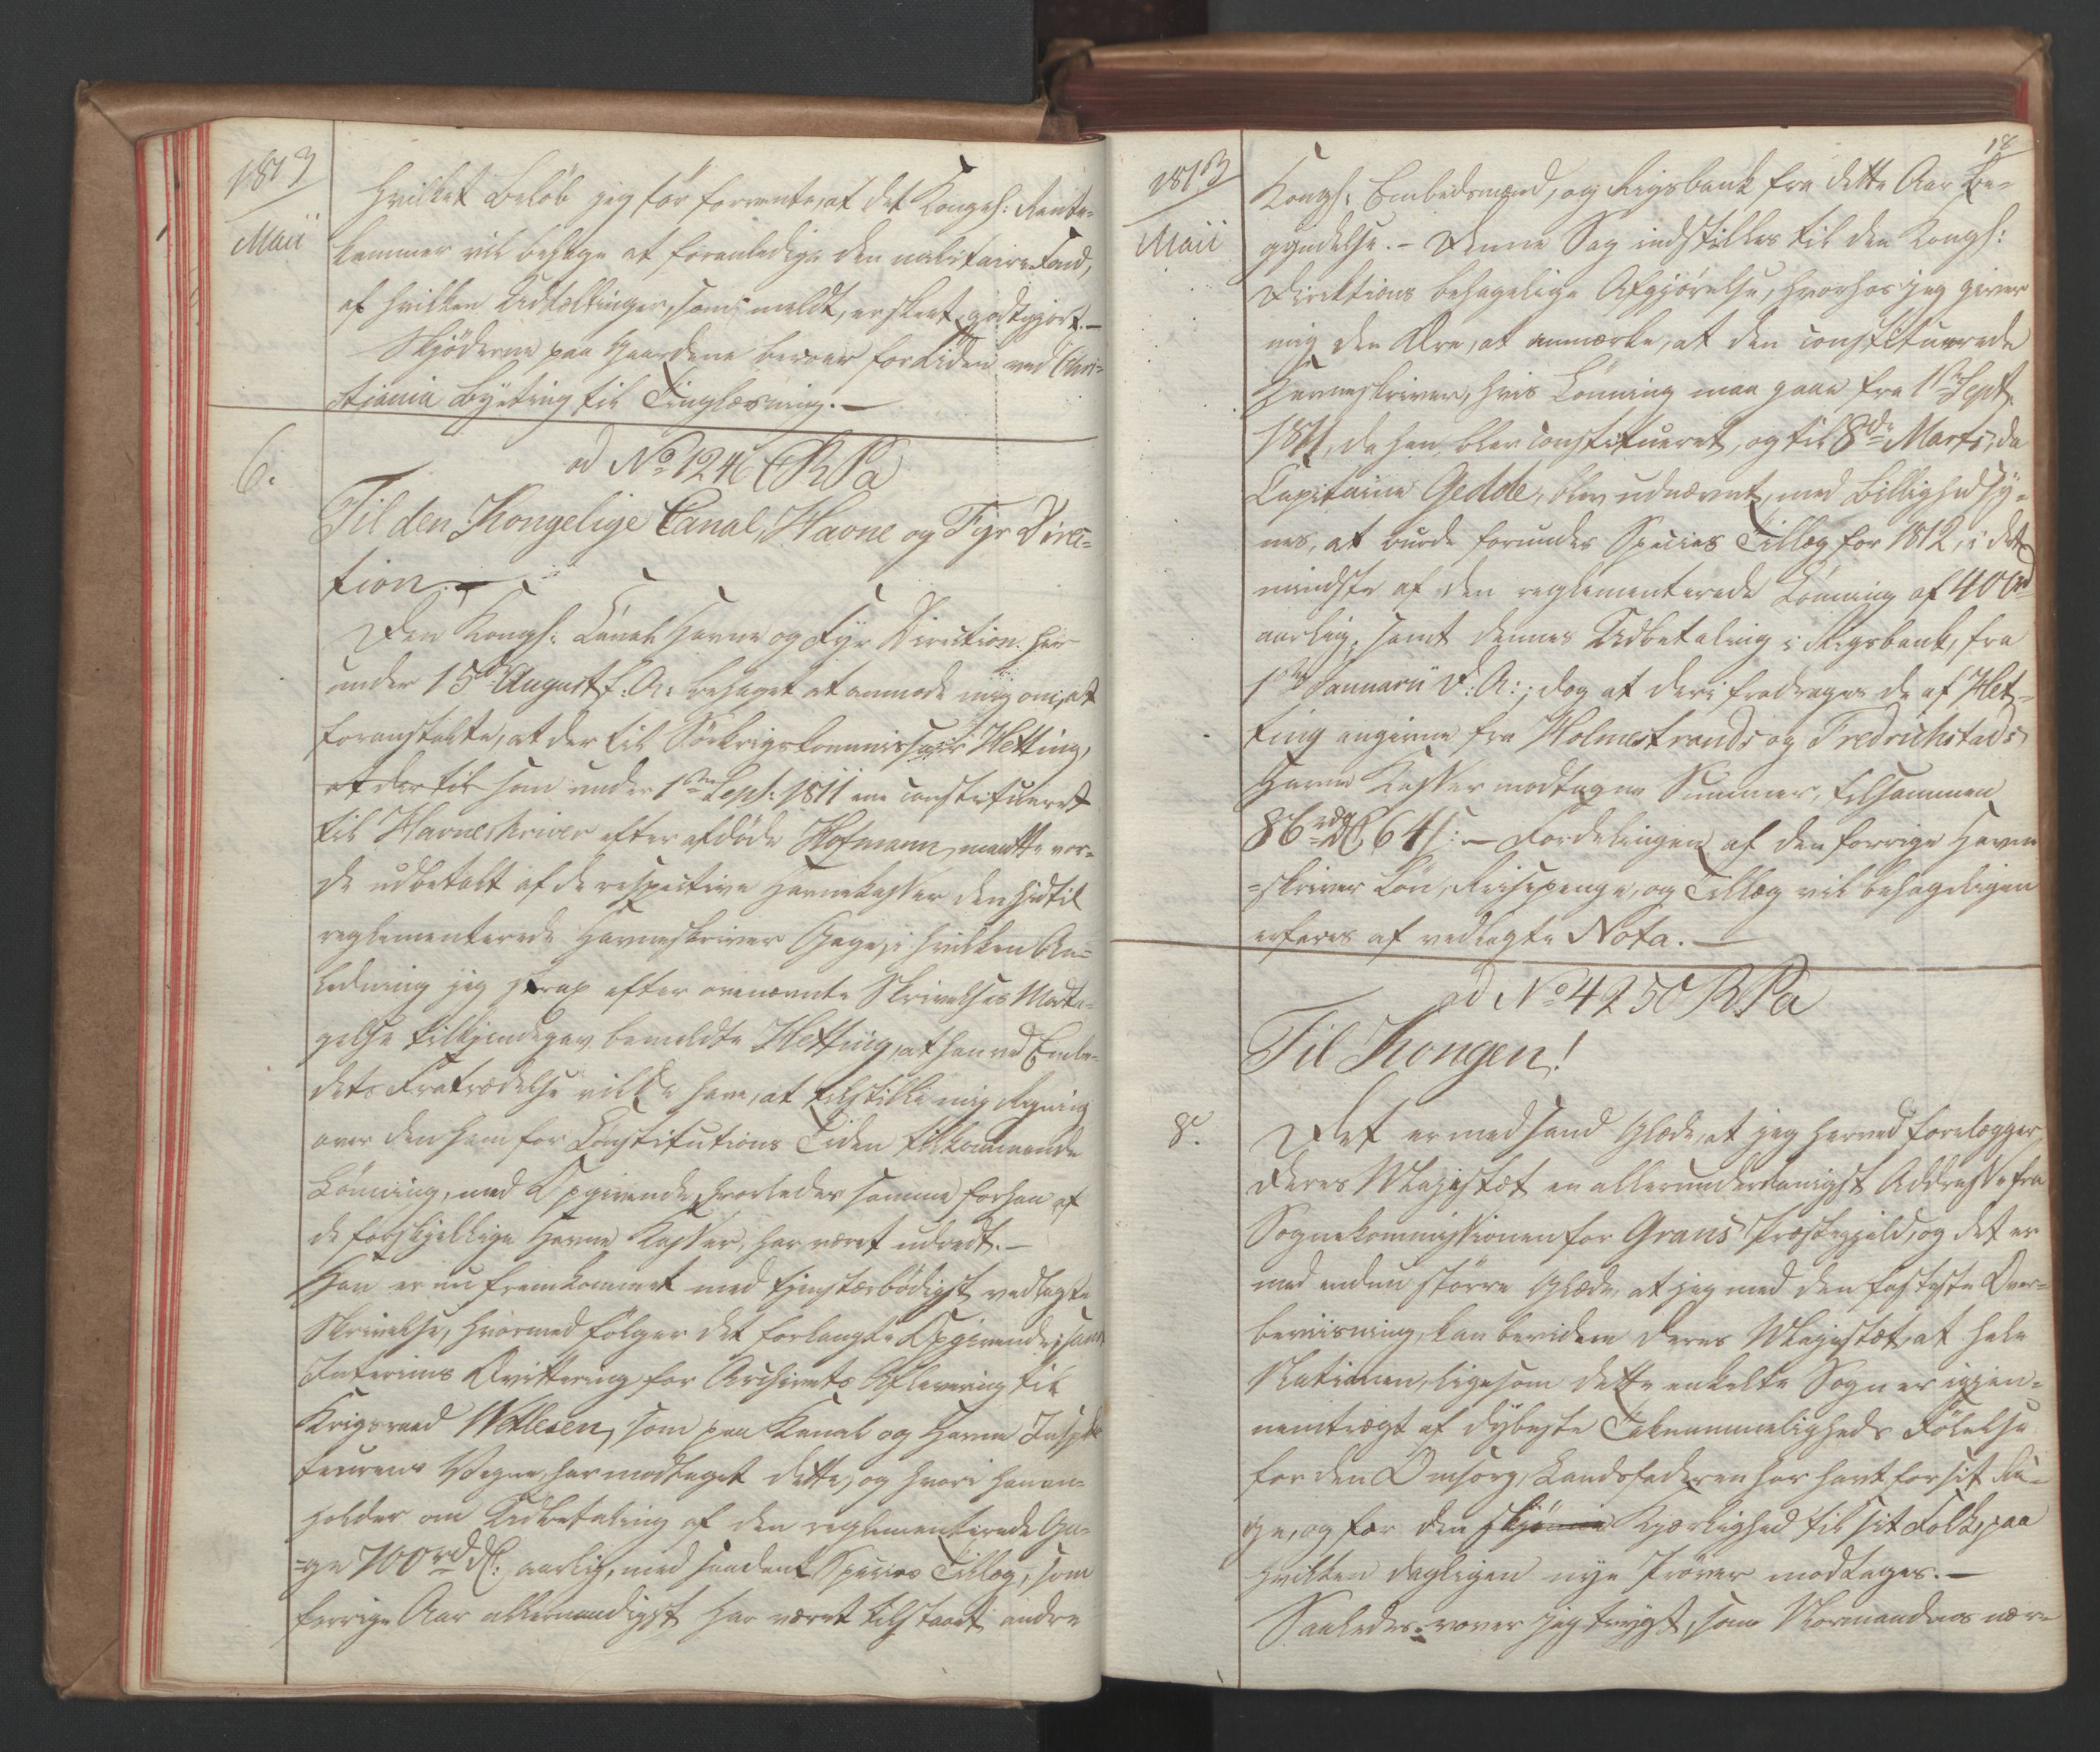 1813
Maii
Hvilket Beløb jeg tør forvente, at det Kongel: Rente-
kammer vil behage at foranledige den militaire Fond,
af hvilken Udtællinger, som meldt, er skeet, godtgjort.—
Skjøderne paa Gaardene beroer for Tiden ved Chri-
stiania Byeting til Tinglæsning.—
6.
ad No 1246 RPa
Til den Kongelige Canal, Havne og Fyr Direc-
tion.—
Den Kongl: Canal Havne og Fyr Direction har
under 15de August f: A: behaget at anmode mig om, at
foranstalte, at der til Söekrigskommissair Hetting,
at der til som under 1ste Sept: 1811 ene constitueret
til Havneskriver efter afdöde Hofmann, maatte vor-
de udbetalt af de respective Havnekasser den hidtil
reglementerede Havneskriver Gage, i hvilken An-
ledning jeg strax efter ovennævnte Skrivelses Modta-
gelse tilkjendegav bemeldte Hetting, at han ved Embe-
dets Fratrædelse vilde have, at tilstille mig Regning
over den ham for Constitutions Tiden tilkommende
Lönning, med Opgivende, hvorledes samme for ham af
de forskjellige Havne Kasser, har været udredt.—
Han er nu fremkommet med tjenstærbödigst vedlagte
Skrivelse, hvormed fölger det forlangte Opgivende, samt
Interims Qvittering for Archivets Aflevering til
Krigsraad Wetlesen, som paa Kanal og Havne Inspek
teurens Vegne, har modtaget dette, og hvori han an-
holder om Udbetaling af den reglementerede Ga-
=ge 700rd: aarlig, med saadant Species Tillæg, som
forrige Aar allernaadigst har været tilstaaet andre
18
1813
Maii
Kongl: Embedsmænd, og Rigsbank fra dette Aars Be-
gyndelse.— Denne Sag indstilles til den Kongl:
Direktions behagelige Afgjörelse, hvorhos jeg giver
mig den Ære, at anmærke, at den constituerede
Havneskriver, hvis Lönning maa gaae fra 1ste Sept:
1811, da han blev constitueret, og til 8de Marts, da
Capitaine Gedde, blev udnævnt, med Billighed sy-
nes, at burde forundes Species Tillæg for 1812, i det
mindste af den reglementerede Lönning af 400rd
aarlig, samt dennes Udbetaling i Rigsbank, fra
1ste Januarii d: A:; dog at deri fradrages de af Het-
ting angivne fra Holmestrands og Fredrichstads
Havne Kasser modtagne Summer, tilsammen
86rd 64 s:— Fordelingen af den forrige Havne
=skriver Lön, Reisepenge, og Tillæg vil behageligen
erfares af vedlagte Nota.—
ad No 4250 RPa
Til Kongen!
8.
Det er med sand Glæde, at jeg herved forelægger
Deres Majestæt en allerunderdanigst Addresse fra
Sognekommissionen for Grans Præstegjeld, og det er
med endnu större Glæde, at jeg med den fasteste Over-
beviisning, kan bevidne Deres Majestæt, at hele
Nationen, ligesom dette enkelte Sogn er igjen-
nemtrængt af dybeste Taknemmeligheds Fölelse
for den Omsorg, Landsfaderen har havt for sit Ri-
ge, og for den skjönne Kjærlighed til sit Folk, paa
hvilken dagligen nye Pröver modtages.—
Saaledes, vover jeg trygt, som Normandens nær-